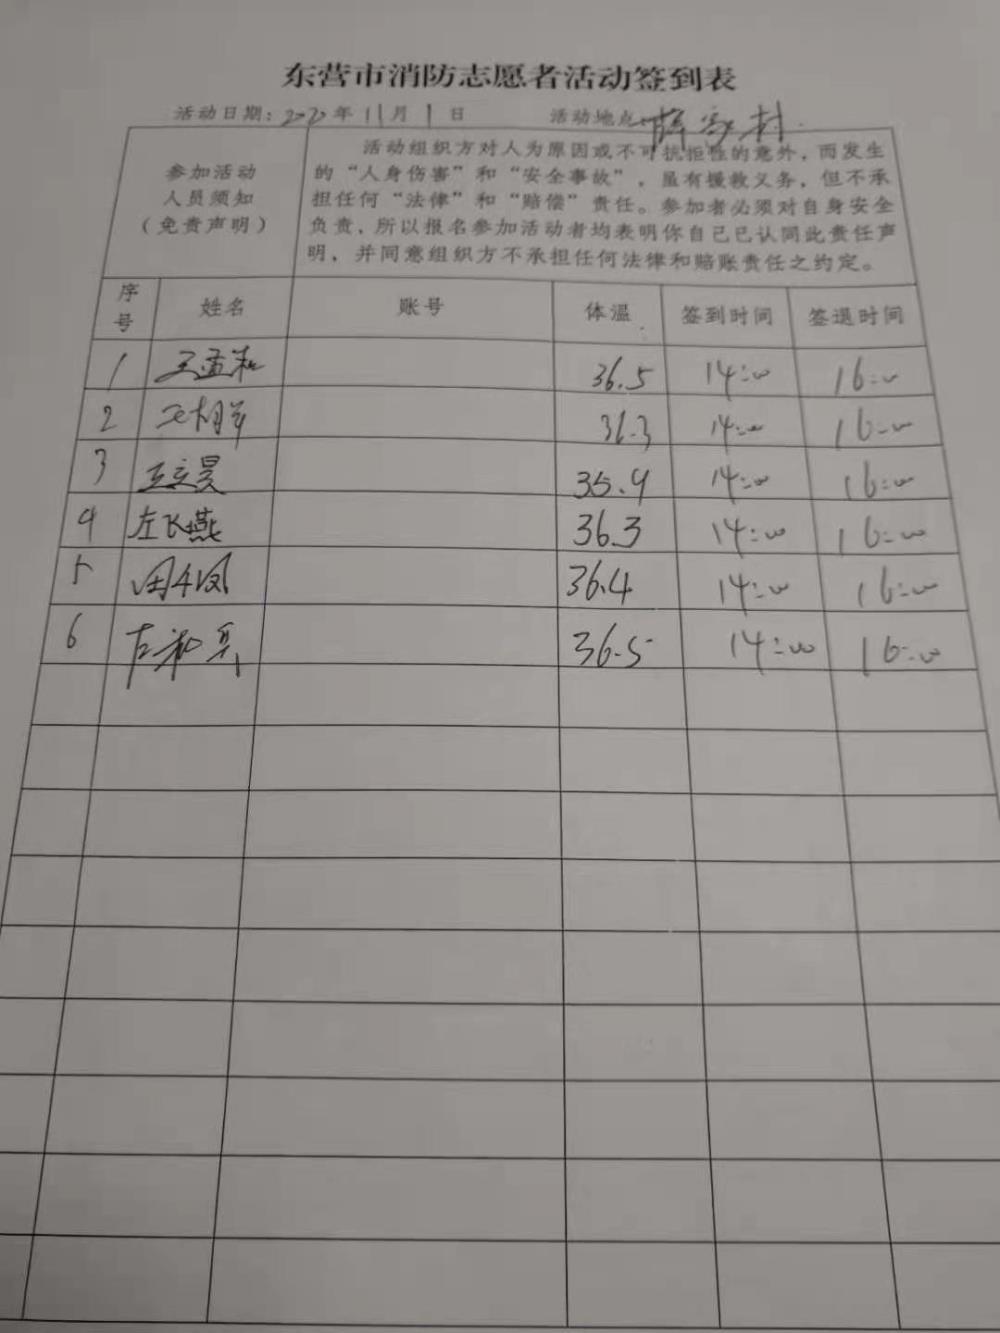 东营市消防志愿者活动签到表
活动日期:2020年11月1日 活动地点 家村
参加活动
人员须知
(免责声明)
活动组织方对人为原因或不可抗拒性的意外,而发生
的“人身伤害”和“安全事故”,虽有援救义务,但不承
担任何“法律”和“赔偿”责任。参加者必须对自身安全
负责,所以报名参加活动者均表明你自己已认同此责任声
明,并同意组织方不承担任何法律和赔账责任之约定。
序号 姓名 账号 体温 签到时间 签退时间
1 王孟和 36.5 14:00 16:00
2 36.3 14:00 16:00
3 王立昊 35.9 14:00 16:00
4 左飞燕 36.3 14:00 16:00
5 田冬凤 36.4 14:00 16:00
6 左和兵 36.5 14:00 16:00